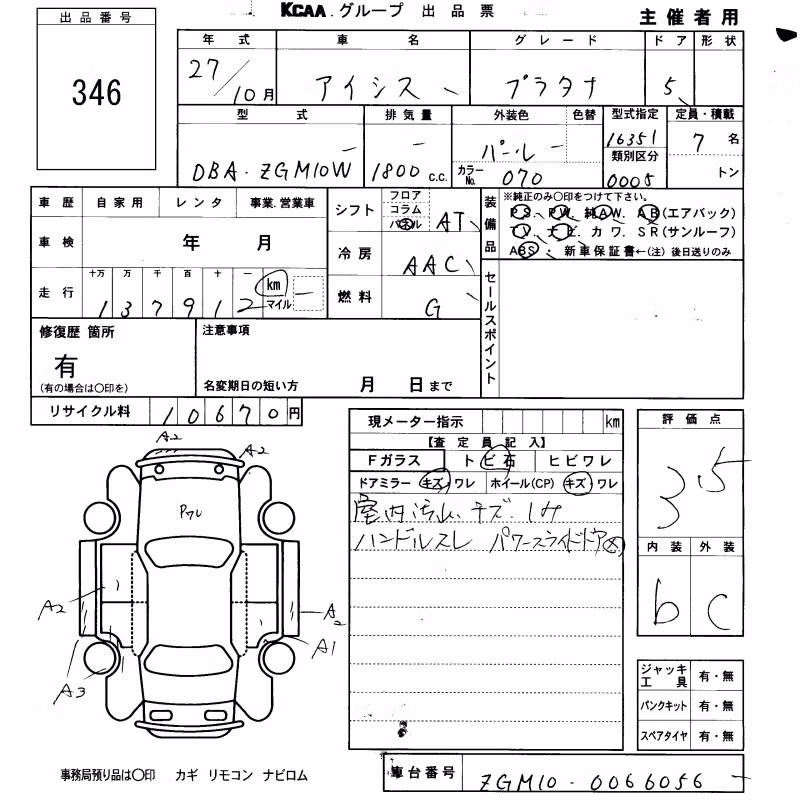 KCAA.グループ 出品票
主催者用
出品番号
346
年式 車名 グレード ドア 形状
27/10月 アイシス プラタナ 5
型式 排気量 外装色 色替 型式指定 定員・積載
DBA-ZGM10W 1800 c.c. パール 16351 7名
カラーNo. 070 類別区分 0005 トン
車歴 自家用 レンタ 事業.営業車
シフト フロア コラム パネル AT
装備品 ※純正のみ〇印をつけて下さい。
PS、PW、純AW、AB(エアバック)
TV、ナビ、カワ、SR(サンルーフ)
ABS・新車保証書←(注)後日送りのみ
車検 年 月
冷房 AAC
走行 十万 万 千 百 十 一
137912 km マイル
燃料 G
セールスポイント
修復歴 箇所
有
(有の場合は〇印を)
注意事項
名変期日の短い方 月 日まで
リサイクル料 10670円
現メーター指示 km
【査定員記入】
Fガラス トビ石 ヒビワレ
ドアミラー キズ ワレ ホイール(CP) キズ ワレ
室内汚れ、キズ、シミ
ハンドルスレ パワースライドドア
評価点
3.5
内装 外装
b C
A2
A2
A2
A2
A1
A3
ジャッキ工具 有・無
パンクキット 有・無
スペアタイヤ 有・無
事務局預り品は〇印 カギ リモコン ナビロム
車台番号 ZGM10-0066056